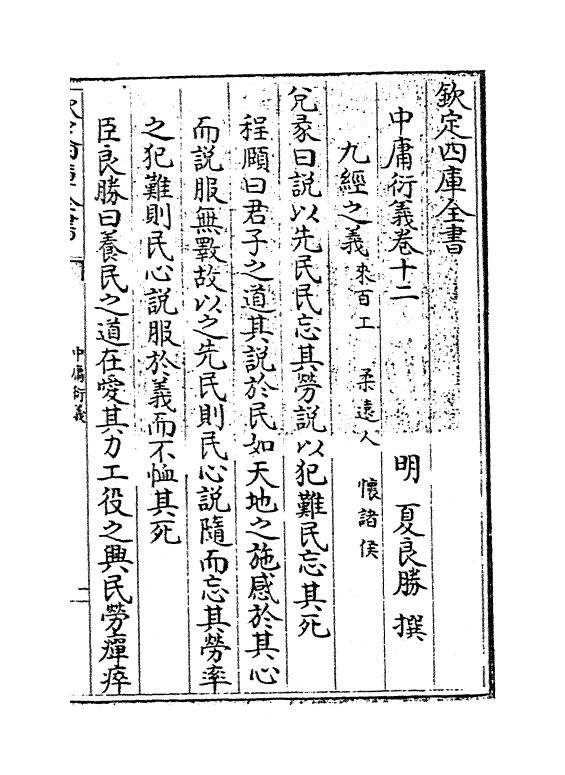 欽定四庫全書
中庸衍義卷十二
明 夏良勝 撰
九經之義 來百工 柔逺人 懷諸侯
兊彖曰説以先民民忘其勞説以犯難民忘其死
程頥曰君子之道其説於民如天地之施感於其心
而説服無斁故以之先民則民心説隨而忘其勞率
之犯難則民心説服於義而不恤其死
臣良勝曰養民之道在愛其力工役之興民勞癉瘁
欽定四庫全書
中庸衍義
一